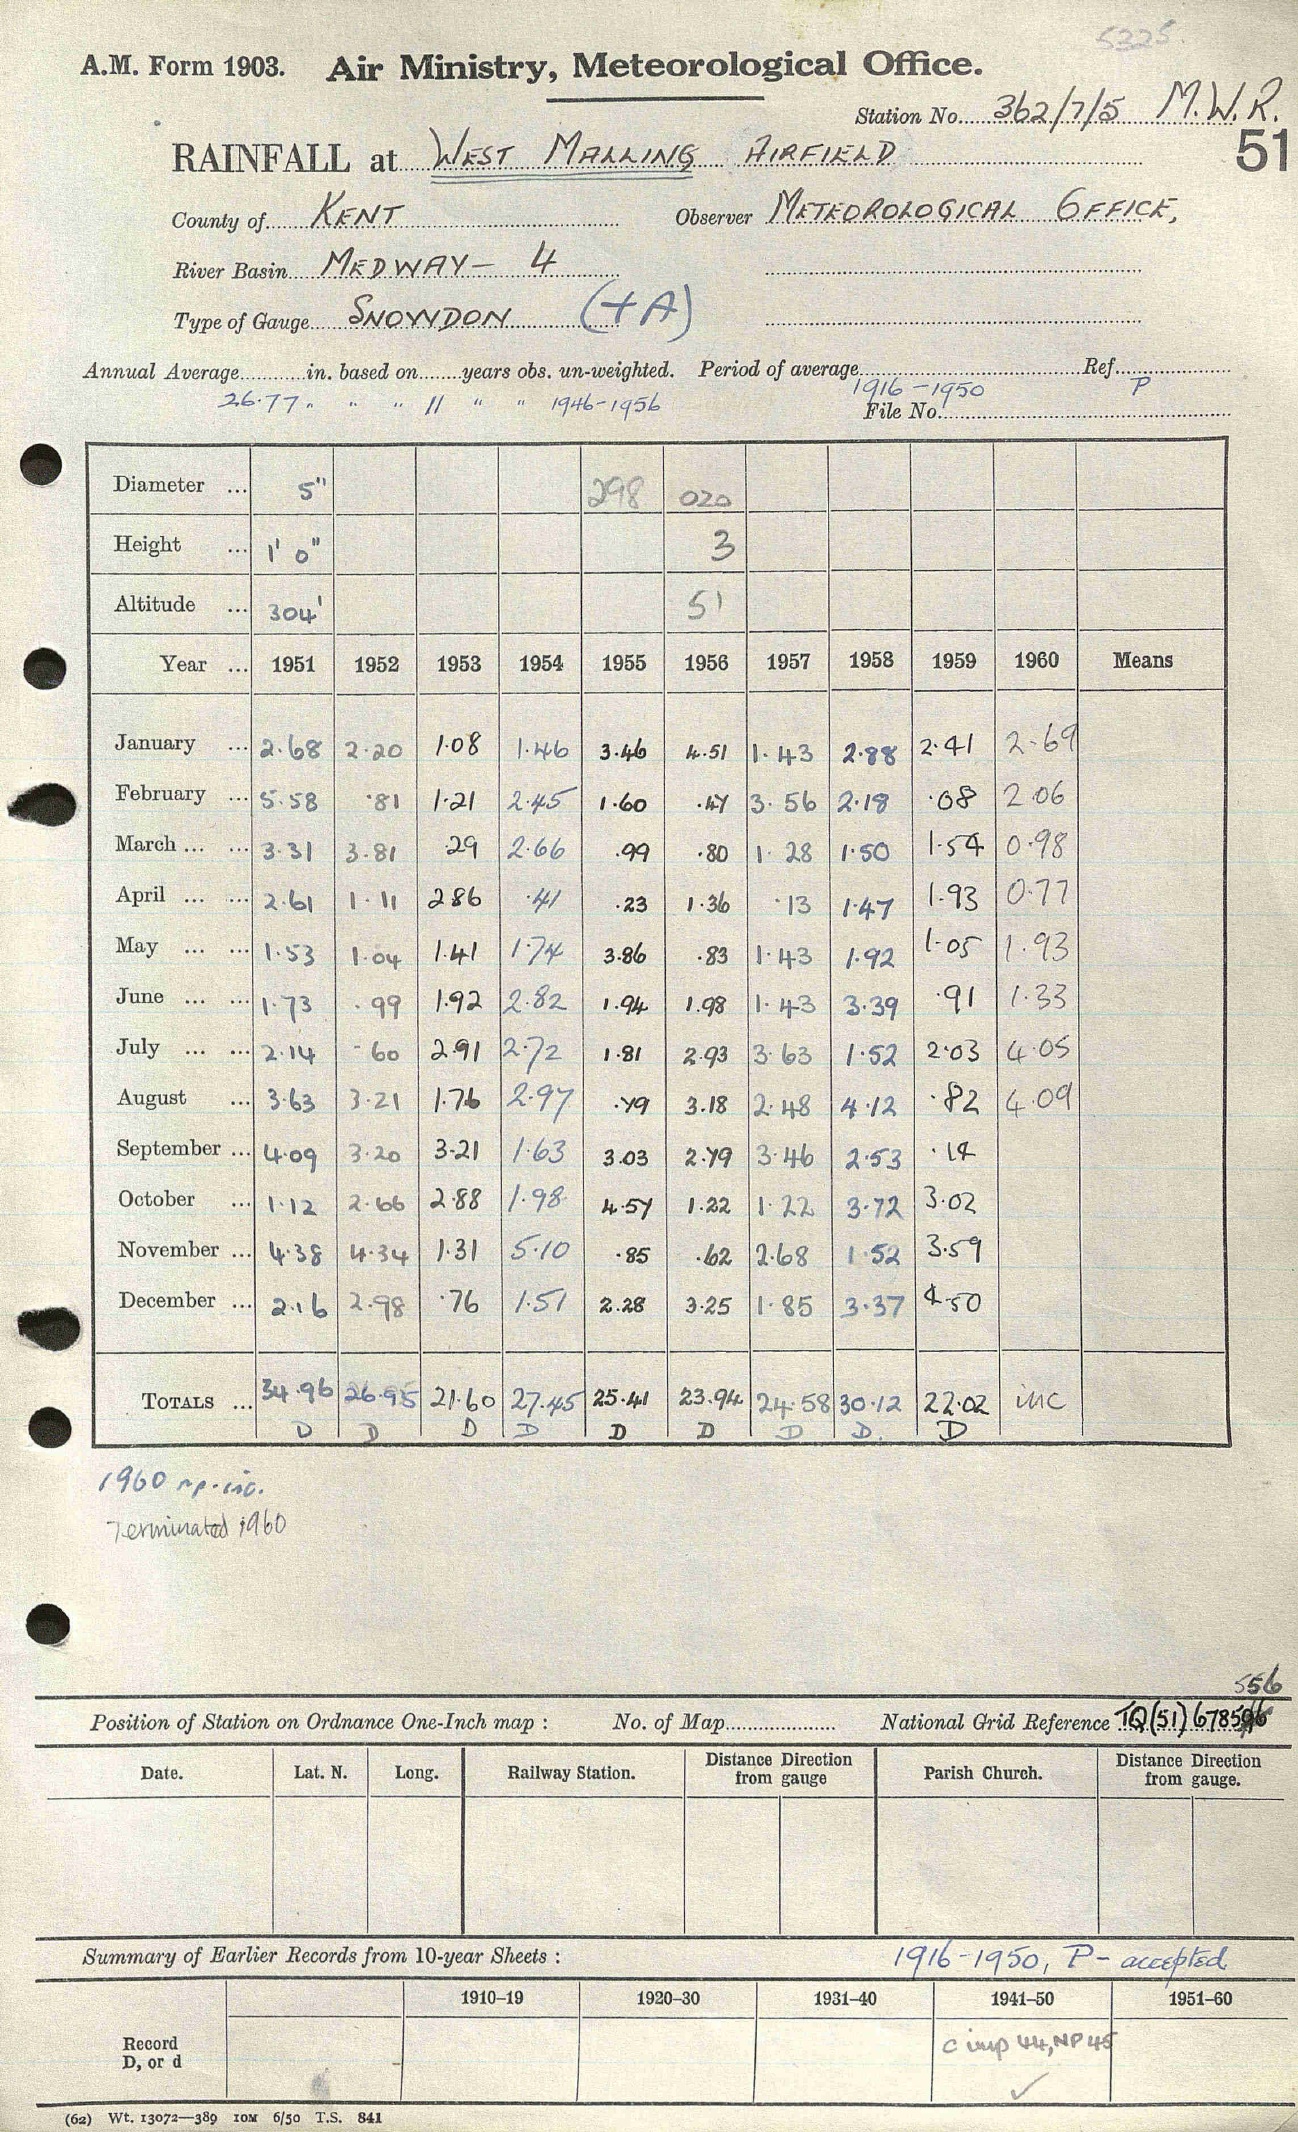 5325.
A.M. Form 1903. Air Ministry, Meteorological Office.
Station No. 362/7/5 M.W.R.
51
RAINFALL at WEST MALLING AIRFIELD
County of KENT Observer METEOROLOGICAL OFFICE,
River Basin MEDWAY - 4
Type of Gauge SNOWDON (+A)
Annual Average in. based on years obs. un-weighted. Period of average Ref.
26.77 " " " 11 " " 1946-1956 1916-1950 P
File No.
Diameter ... 5" 298 020
Height ... 1' 0" 3
Altitude ... 304' 51
Year ... 1951 1952 1953 1954 1955 1956 1957 1958 1959 1960 Means
January ... 2.68 2.20 1.08 1.46 3.46 4.51 1.43 2.88 2.41 2.69
February ... 5.58 .81 1.21 2.45 1.60 .47 3.56 2.18 .08 2.06
March ... ... 3.31 3.81 .29 2.66 .99 .80 1.28 1.50 1.54 0.98
April ... ... 2.61 1.11 2.86 .41 .23 1.36 .13 1.47 1.93 0.77
May ... ... 1.53 1.04 1.41 1.74 3.86 .83 1.43 1.92 1.05 1.93
June ... ... 1.73 .99 1.92 2.82 1.94 1.98 1.43 3.39 .91 1.33
July ... ... 2.14 .60 2.91 2.72 1.81 2.93 3.63 1.52 2.03 4.05
August ... 3.63 3.21 1.76 2.97 .79 3.18 2.48 4.12 .82 4.09
September ... 4.09 3.20 3.21 1.63 3.03 2.79 3.46 2.53 .14
October ... 1.12 2.66 2.88 1.98 4.57 1.22 1.22 3.72 3.02
November ... 4.38 4.34 1.31 5.10 .85 .62 2.68 1.52 3.59
December ... 2.16 2.98 .76 1.51 2.28 3.25 1.85 3.37 4.50
TOTALS ... 34.96 26.95 21.60 27.45 25.41 23.94 24.58 30.12 22.02 inc
D D D D D D D D. D
1960 np. inc.
Terminated 1960
556
Position of Station on Ordnance One-Inch map : No. of Map National Grid Reference TQ(51)678
Date. Lat. N. Long. Railway Station. Distance Direction from gauge Parish Church. Distance Direction from gauge.
Summary of Earlier Records from 10-year Sheets : 1916-1950, P - accepted
1910–19 1920–30 1931–40 1941–50 1951–60
Record D, or d c inp 44, NP 45
(62) Wt. 13072—389 10M 6/50 T.S. 841